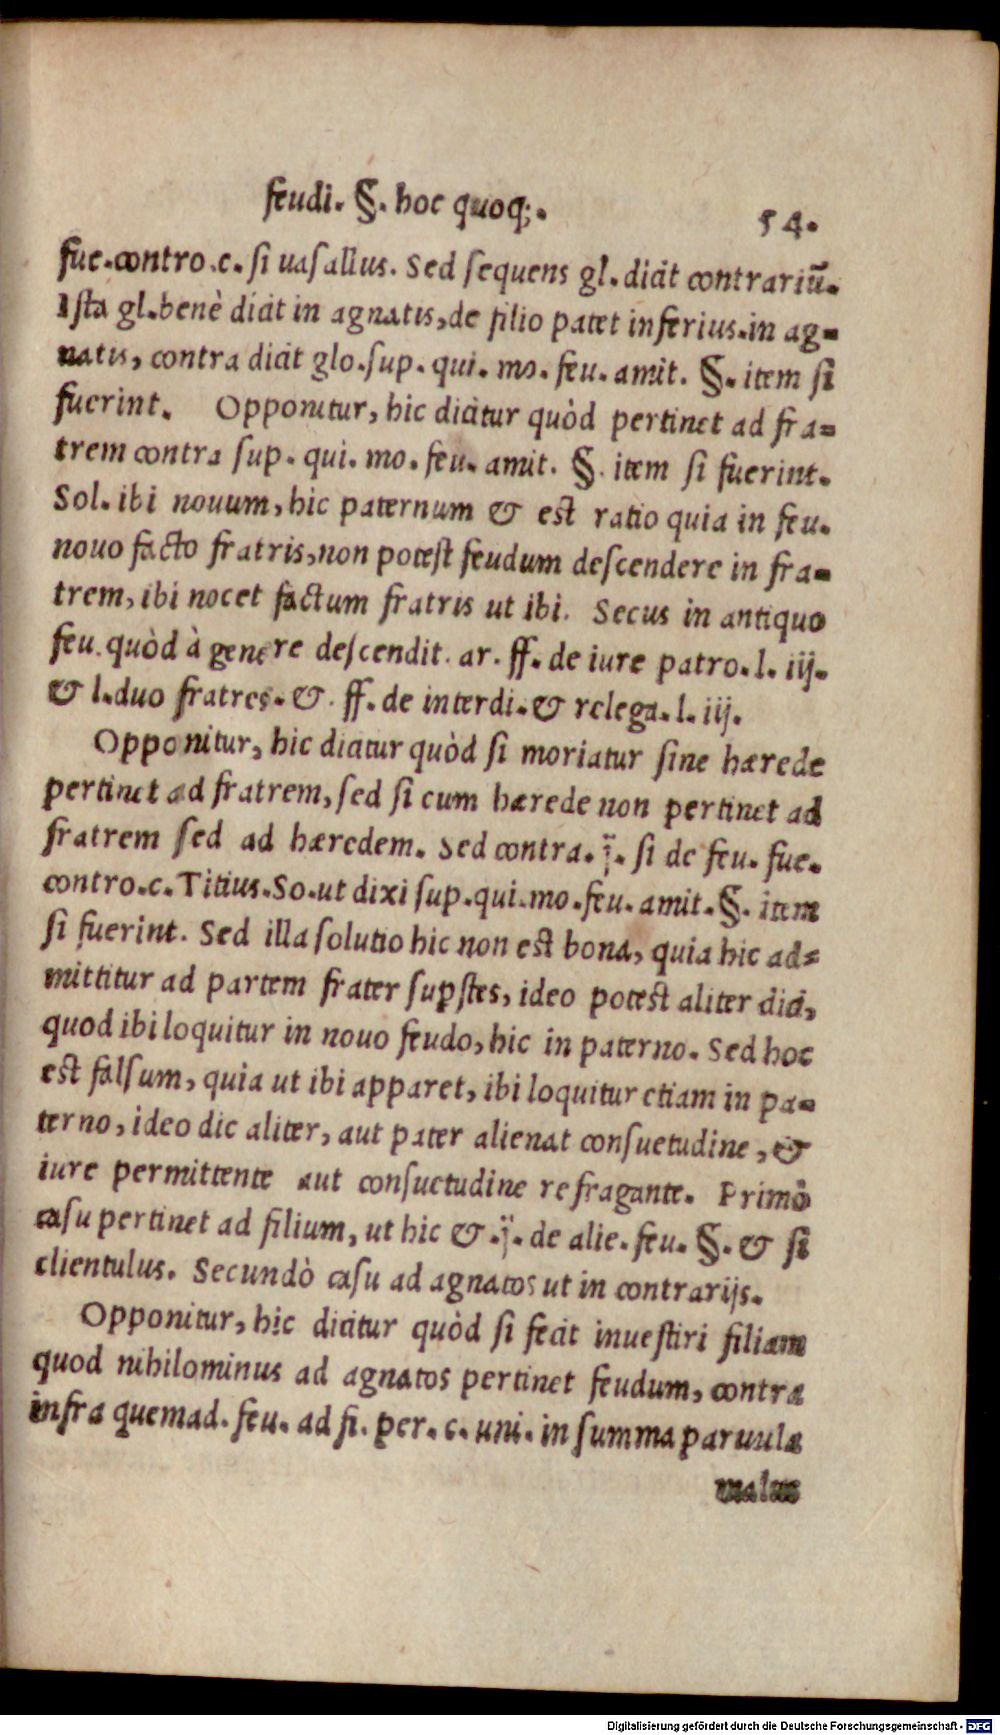 feudi. §. hoc quoq;.
54.
fue.contro.c. si uasallus. Sed sequens gl. dicit contrariū.
Ista gl.benè dicit in agnatis,de filio patet inferius.in ag-
natis, contra dicit glo.sup. qui. mo. feu. amit. §. item si
fuerint. Opponitur, hic dicitur quòd pertinet ad fra-
trem contra sup. qui. mo. feu. amit. §. item si fuerint.
Sol. ibi nouum, hic paternum & est ratio quia in feu.
nouo facto fratris,non potest feudum descendere in fra-
trem, ibi nocet factum fratris ut ibi. Secus in antiquo
feu. quòd à genere descendit. ar. ff. de iure patro. l. iij.
& l.duo fratres. &. ff. de interdi. & relega. l. iij.
Opponitur, hic dicitur quòd si moriatur sine hærede
pertinet ad fratrem, sed si cum hærede non pertinet ad
fratrem sed ad hæredem. Sed contra. j̈. si de feu. fue.
contro.c. Titius. So. ut dixi sup.qui.mo.feu. amit. §. item
si fuerint. Sed illa solutio hic non est bona, quia hic ad-
mittitur ad partem frater supstes, ideo potest aliter dici,
quod ibi loquitur in nouo feudo, hic in paterno. Sed hoc
est falsum, quia ut ibi apparet, ibi loquitur etiam in pa-
terno, ideo dic aliter, aut pater alienat consuetudine, &
iure permittente aut consuetudine refragante. Primò
casu pertinet ad filium, ut hic & .j̈. de alie. feu. §. & si
clientulus. Secundò casu ad agnatos ut in contrarijs.
Opponitur, hic dicitur quòd si fecit inuestiri filiam
quod nihilominus ad agnatos pertinet feudum, contra
infra quemad. feu. ad fi. per. c. uni. in summa paruula
ualus
Digitalisierung gefördert durch die Deutsche Forschungsgemeinschaft - DFG